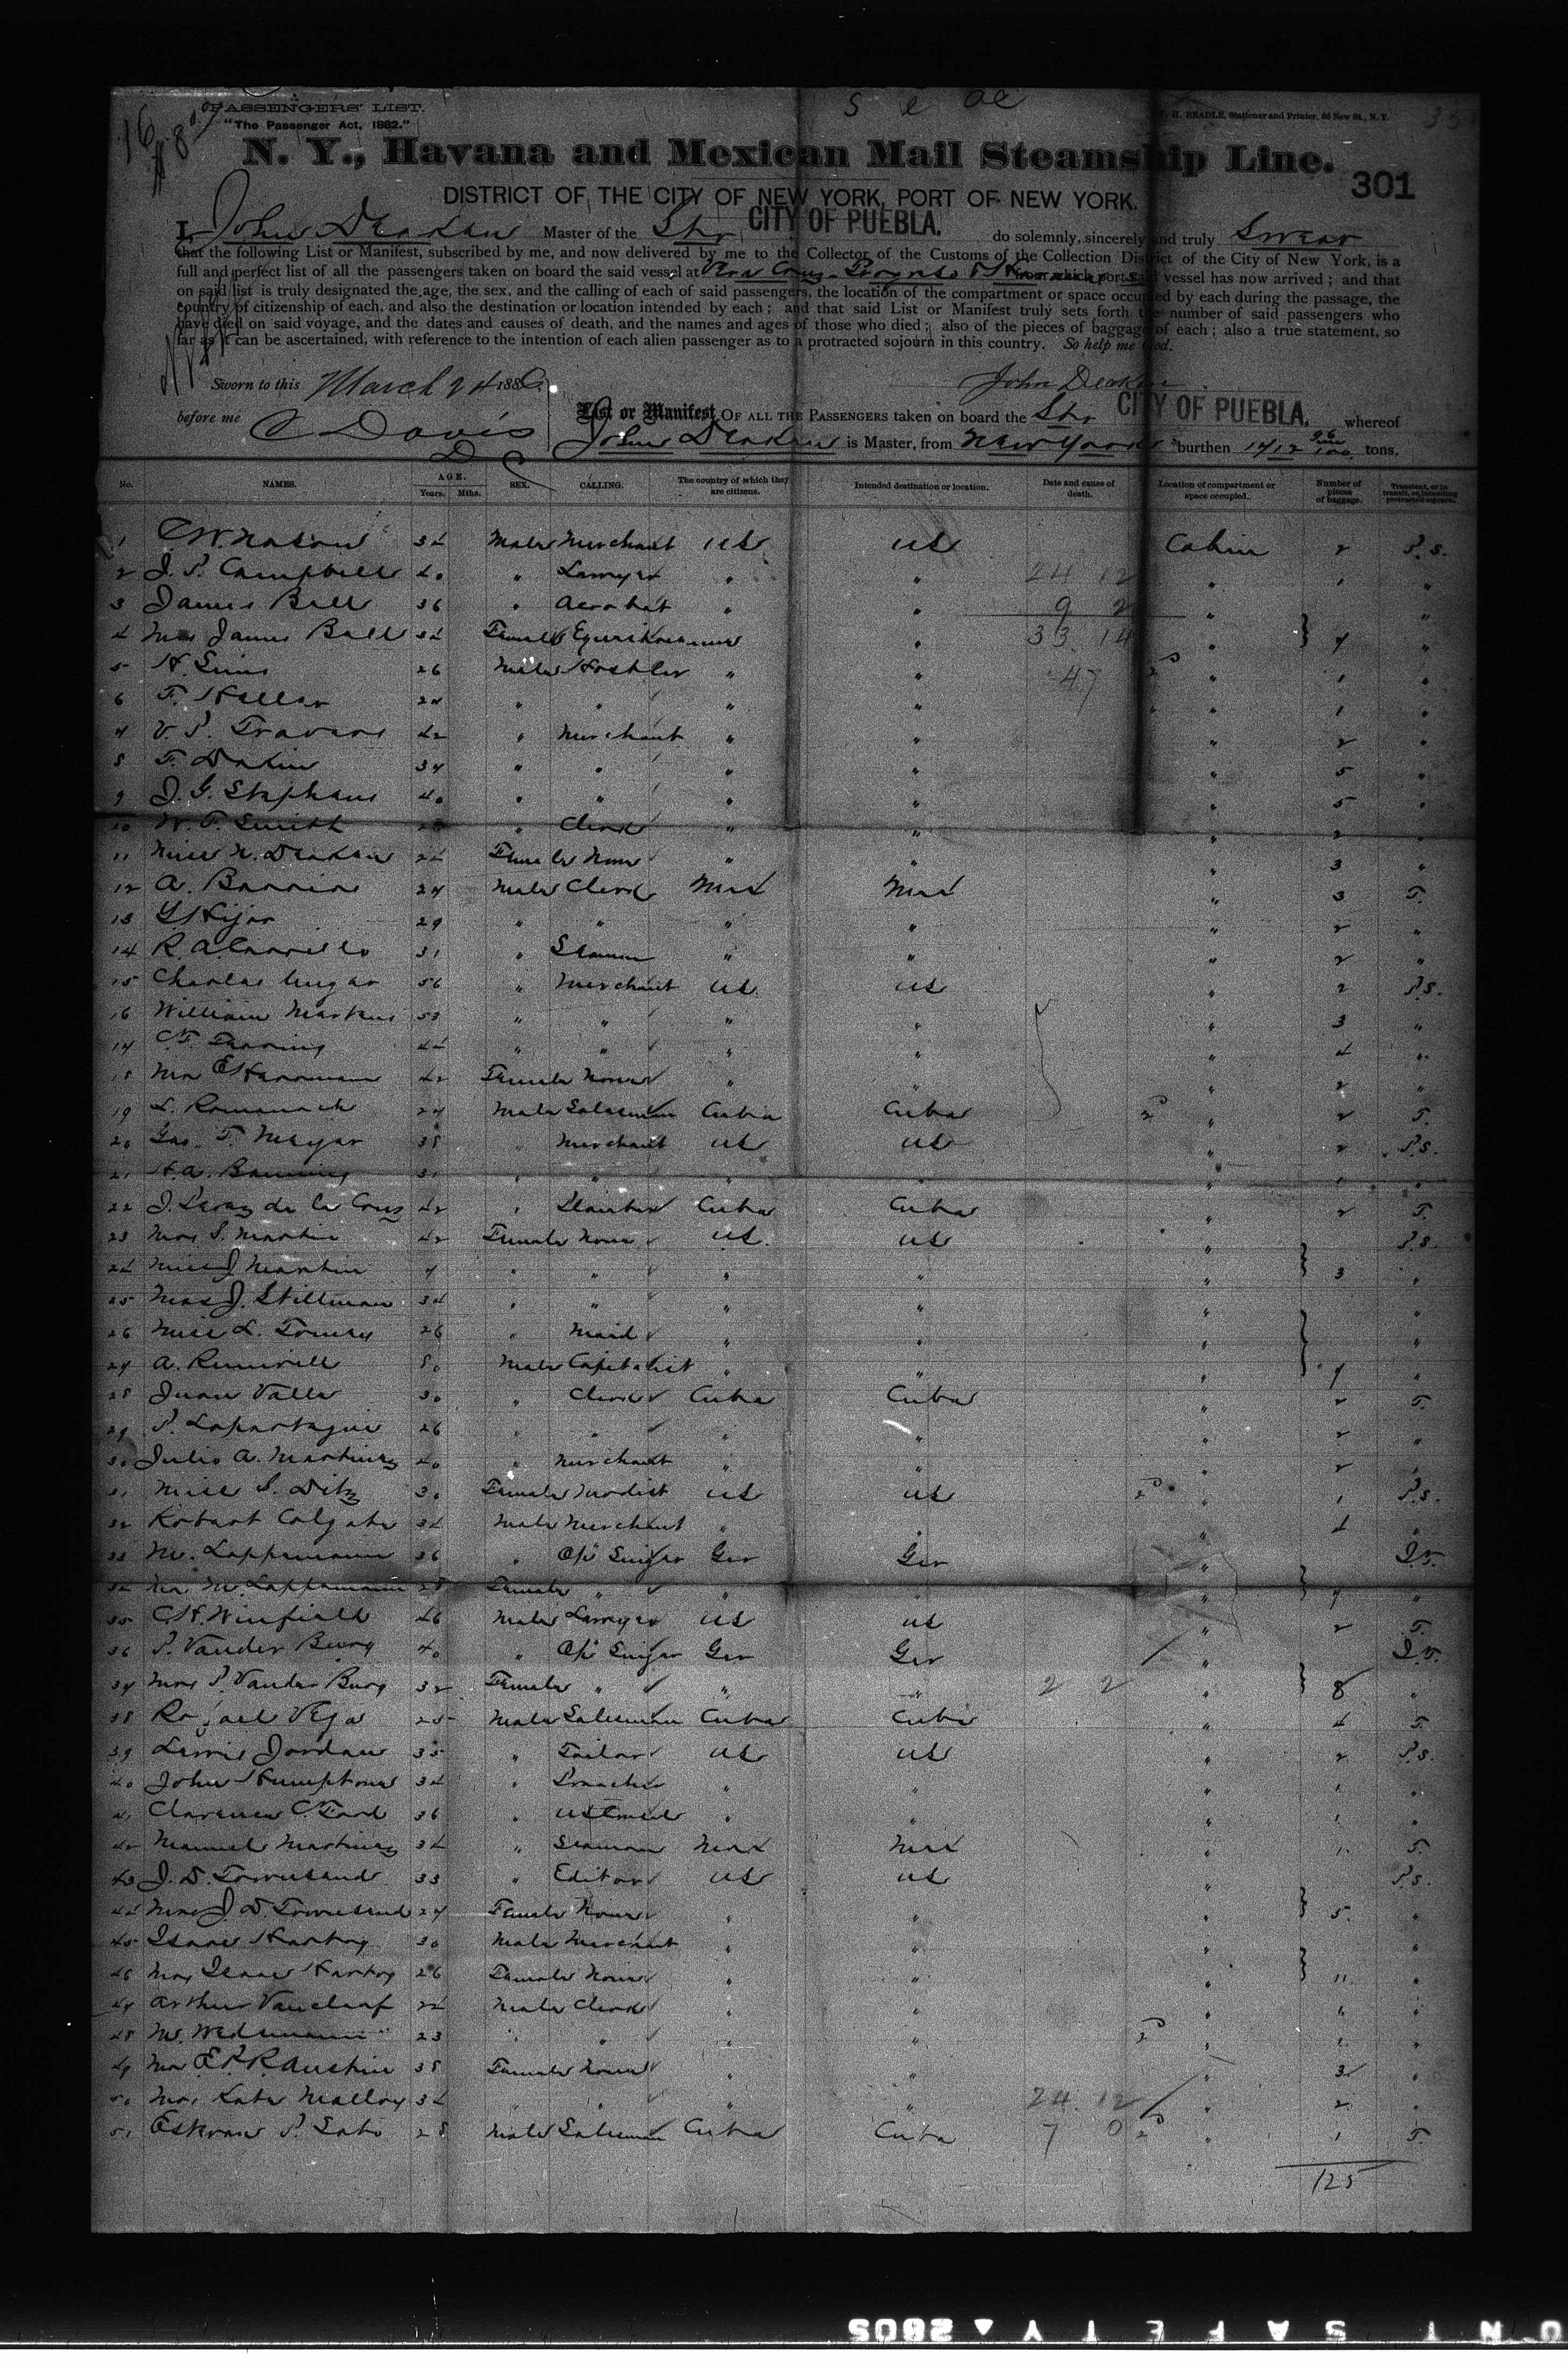 PASSENGERS' LIST.
"The Passenger Act, 1882."
H. BEADLE, Stationer and Printer, 66 New St., N. Y.
N. Y., Havana and Mexican Mail Steamship Line.
301
DISTRICT OF THE CITY OF NEW YORK, PORT OF NEW YORK.
I, John Deaken Master of the Str CITY OF PUEBLA. do solemnly, sincerely and truly Swear
that the following List or Manifest, subscribed by me, and now delivered by me to the Collector of the Customs of the Collection District of the City of New York, is a
full and perfect list of all the passengers taken on board the said vessel at Vera Cruz Progreso & Havana from which port said vessel has now arrived; and that
on said list is truly designated the age, the sex, and the calling of each of said passengers, the location of the compartment or space occupied by each during the passage, the
country of citizenship of each, and also the destination or location intended by each; and that said List or Manifest truly sets forth the number of said passengers who
have died on said voyage, and the dates and causes of death, and the names and ages of those who died; also of the pieces of baggage of each; also a true statement, so
far as it can be ascertained, with reference to the intention of each alien passenger as to a protracted sojourn in this country. So help me God.
Sworn to this March 24 1886 John Deaken
before me C Davis
List or Manifest OF ALL THE PASSENGERS taken on board the Str CITY OF PUEBLA. whereof
John Deaken is Master, from New York burthen tons.
No. NAMES. AGE. Years. Mths. SEX. CALLING. The country of which they are citizens. Intended destination or location. Date and cause of death. Location of compartment or space occupied. Number of pieces of baggage. Transient, or in transit, or intending protracted sojourn.
1 C W. Nason 34 Male Merchant US US Cabin 2 P.S.
2 J. P. Campbell 40 " Lawyer " " " 1 "
3 James Bell 36 " Acrobat " " " "
4 Mrs James Bell 34 Female " " 7 "
5 H. Sims 26 Male Hostler " " " 1 "
6 F. Heller 24 " " " " " 1 "
7 V. P. Travers 42 " Merchant " " " 2 "
8 F. Dakin 37 " " " " " 5 "
9 J. G. Stephens 40 " " " " " 5 "
10 W. F. Smith " Clerk " " " 2 "
11 Miss N. Deaken 24 Female None " " " 3 "
12 A. Barrios 27 Male Clerk Mex Mex " 3 T.
13 Y Hijar 29 " " " " " 2 "
14 R. A. Carrillo 31 " Seaman " " " 2 "
15 Charles 56 " Merchant US US " 2 P.S.
16 William Martens 53 " " " " " 3 "
17 44 " " " " " 4 "
18 Mrs E Harriman 42 Female None " " " 2 "
19 L. Romanach 27 Male Salesman Cuba Cuba " 2 T.
20 Geo. F. Meyer 38 Merchant US US " 2 P.S.
21 H. A. Banning 31 " " " " " 1 "
22 J. Perez de la Cruz 42 " Planter Cuba Cuba " 2 T.
23 Mrs S. Martin 42 Female None US US " P.S.
24 Miss J Martin 7 " " " " " 3 "
25 Mrs J. Stillman 34 " " " " " "
26 Miss L. 26 " Maid " " " "
27 A. 50 Male Capitalist " " " 7 "
28 Juan Valle 30 " Clerk Cuba Cuba " 2 T.
29 P. 26 " " " " " 2 "
30 Julio A. Martinez 40 " Merchant " " " 2 "
31 Miss S. Ditz 30 Female Modist US US " 1 P.S.
32 Robert Colgate 34 Male Merchant " " " 4 "
33 M. Lappmann 36 " Op Singer Ger Ger "
34 Mrs M. Lappmann 28 Female " " " " 7 "
35 C H. Winfield 46 Male Lawyer US US " 2 T.
36 P. Vander Burg 40 " Op Singer Ger Ger "
37 Mrs P. Vander Burg 32 Female " " " " 8 "
38 Rafael Vega 25 Male Salesman Cuba Cuba " 4 T.
39 Lewis Jordan 35 " Tailor US US " 2 P.S.
40 John Humptons 34 " Preacher " " " 1 "
41 Clarence C Ford 36 " " " " 1 "
42 Manuel Martinez 34 " Seaman Mex Mex " 1 T.
43 J. D. Townsend 33 " Editor US US " P.S.
44 Mrs J. D. Townsend 27 Female None " " " 5 "
45 Isaac Hartog 30 Male Merchant " " " "
46 Mrs Isaac Hartog 26 Female None " " " 11 "
47 Arthur 22 Male Clerk " " " "
48 M. 23 " " " " " 1 "
49 Mrs E. P. R. Austin 38 Female None " " " 3 "
50 Mrs Kate Malloy 34 " " " " " 2 "
51 28 Male Salesman Cuba Cuba " 1 T.
125